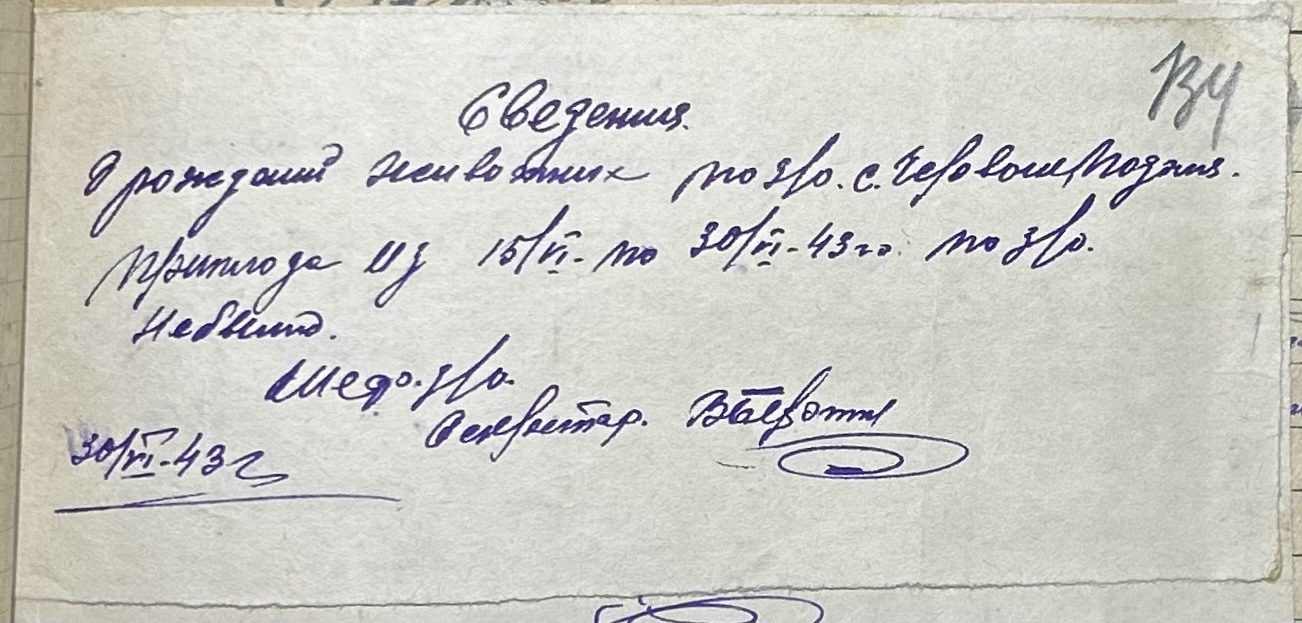 134
Сведения.
О рождении животних по з/о. с. Червоне Подиля.
Приплода из 15/VI - по 30/VI - 43 го. по з/о.
Небыло.
з/о.
Секретар.
30/VI - 43 г